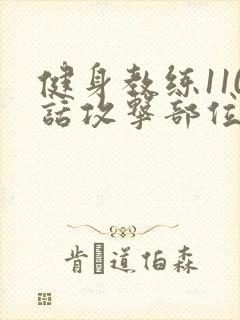 健身教练110
話攻撃部位
肯道伯森